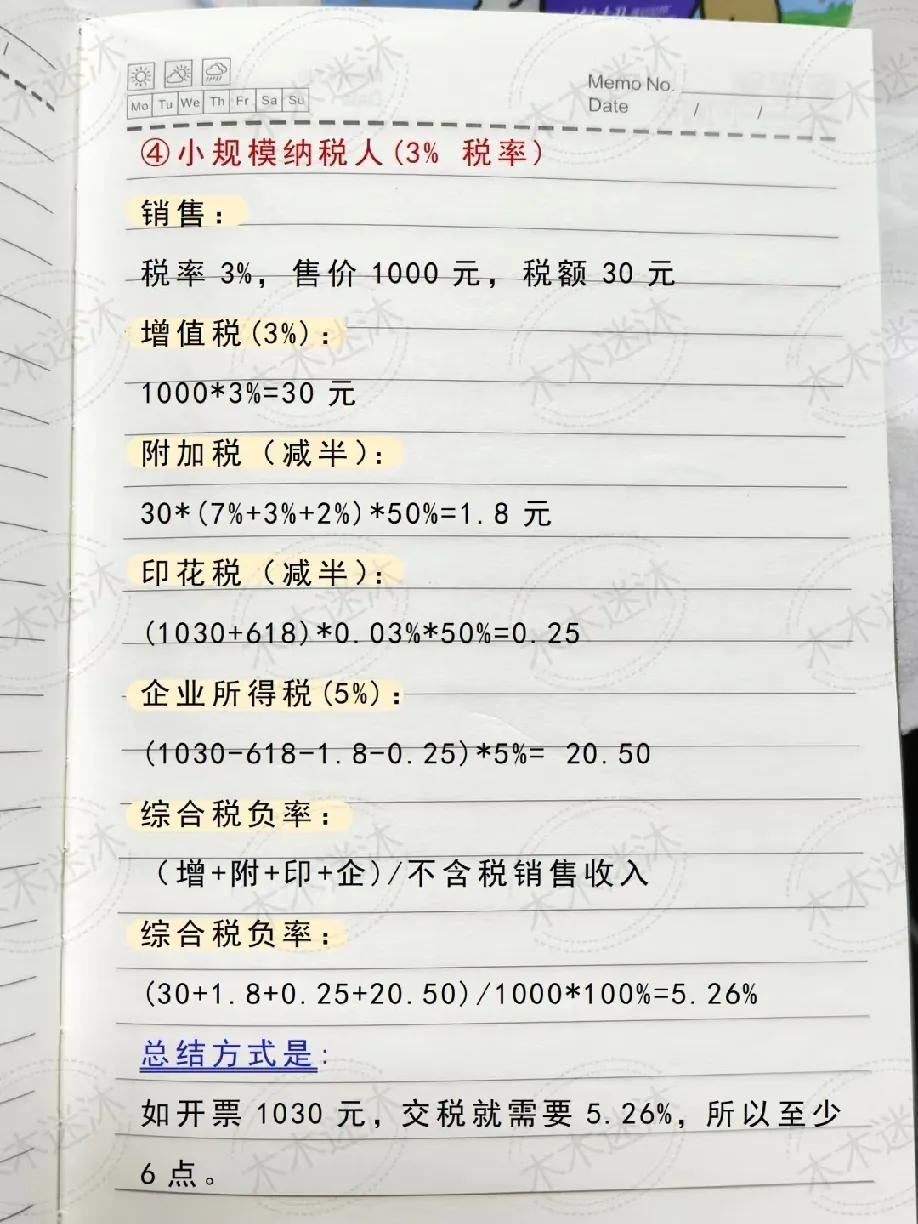 Memo No.
Mo Tu We Th Fr Sa Su
Date / /
④小规模纳税人(3% 税率)
销售：
税率 3%，售价 1000 元，税额 30 元
增值税(3%)：
1000*3%=30 元
附加税（减半）：
30*(7%+3%+2%)*50%=1.8 元
印花税（减半）：
(1030+618)*0.03%*50%=0.25
企业所得税(5%)：
(1030-618-1.8-0.25)*5%= 20.50
综合税负率：
（增+附+印+企)/不含税销售收入
综合税负率：
(30+1.8+0.25+20.50)/1000*100%=5.26%
总结方式是:
如开票 1030 元，交税就需要 5.26%，所以至少
6 点。
木木迷沐